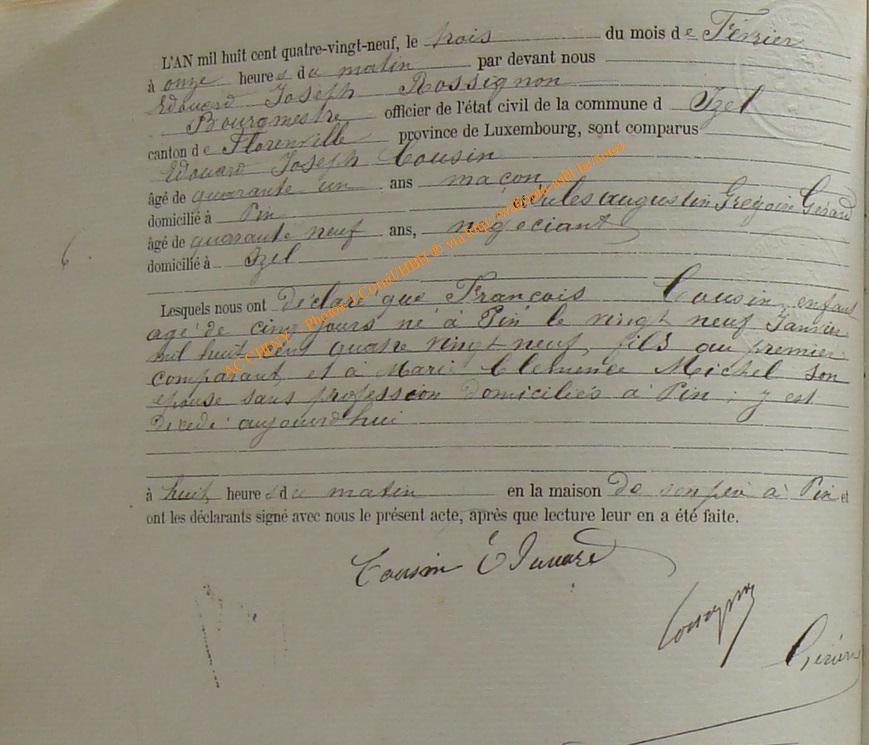 L'AN mil huit cent quatre-vingt-neuf, le trois du mois de Février
à onze heures du matin par devant nous
Edouard Joseph Rossignon
Bourgmestre officier de l'état civil de la commune d Izel
canton de Florenville province de Luxembourg, sont comparus
Edouard Joseph Cousin
âgé de quarante un ans maçon
domicilié à Pin Jules Augustin Grégoire Gérard
âgé de quarante neuf ans, négociant
domicilié à Izel
6
Lesquels nous ont déclaré que François Cousin, enfant
agé de cinq jours né à Pin le vingt neuf Janvier
mil huit cent quatre vingt neuf, fils du premier
comparant et à Marie Clémence Michel son
épouse sans profession domiciliés à Pin, y est
décédé aujourd'hui
à huit heures du matin en la maison de son père à Pin et
ont les déclarants signé avec nous le présent acte, après que lecture leur en a été faite.
Cousin Edouard
ACCHINY Photos J.Cornil HBH @ via